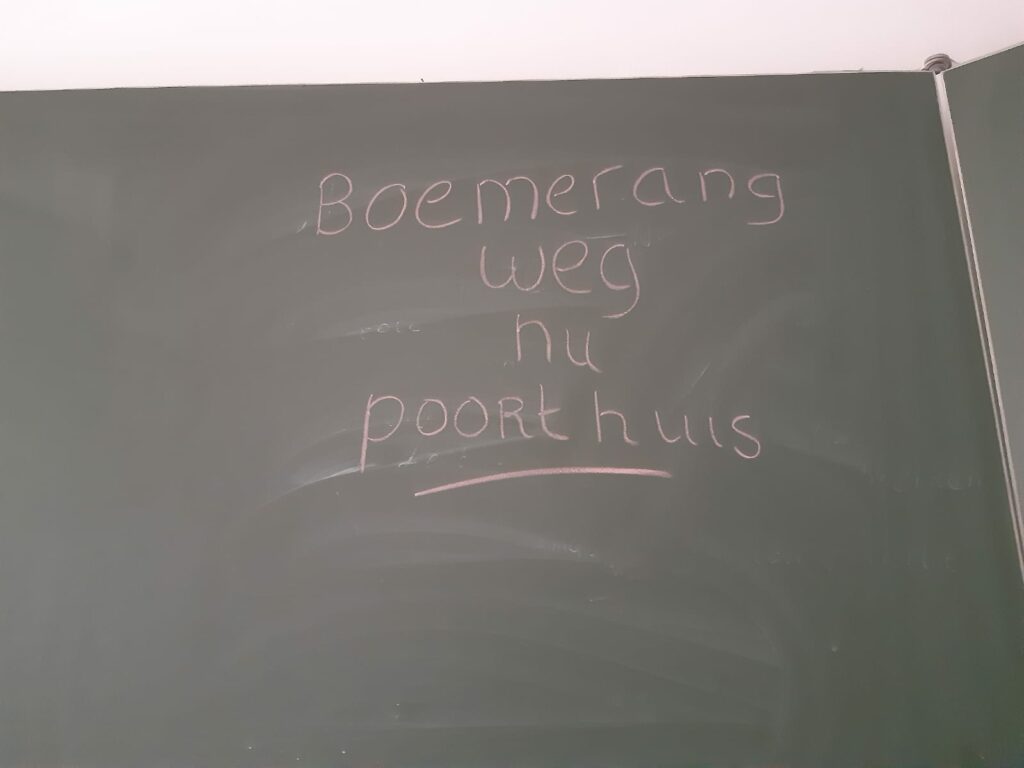 Boemerang
weg
nu
poort huis